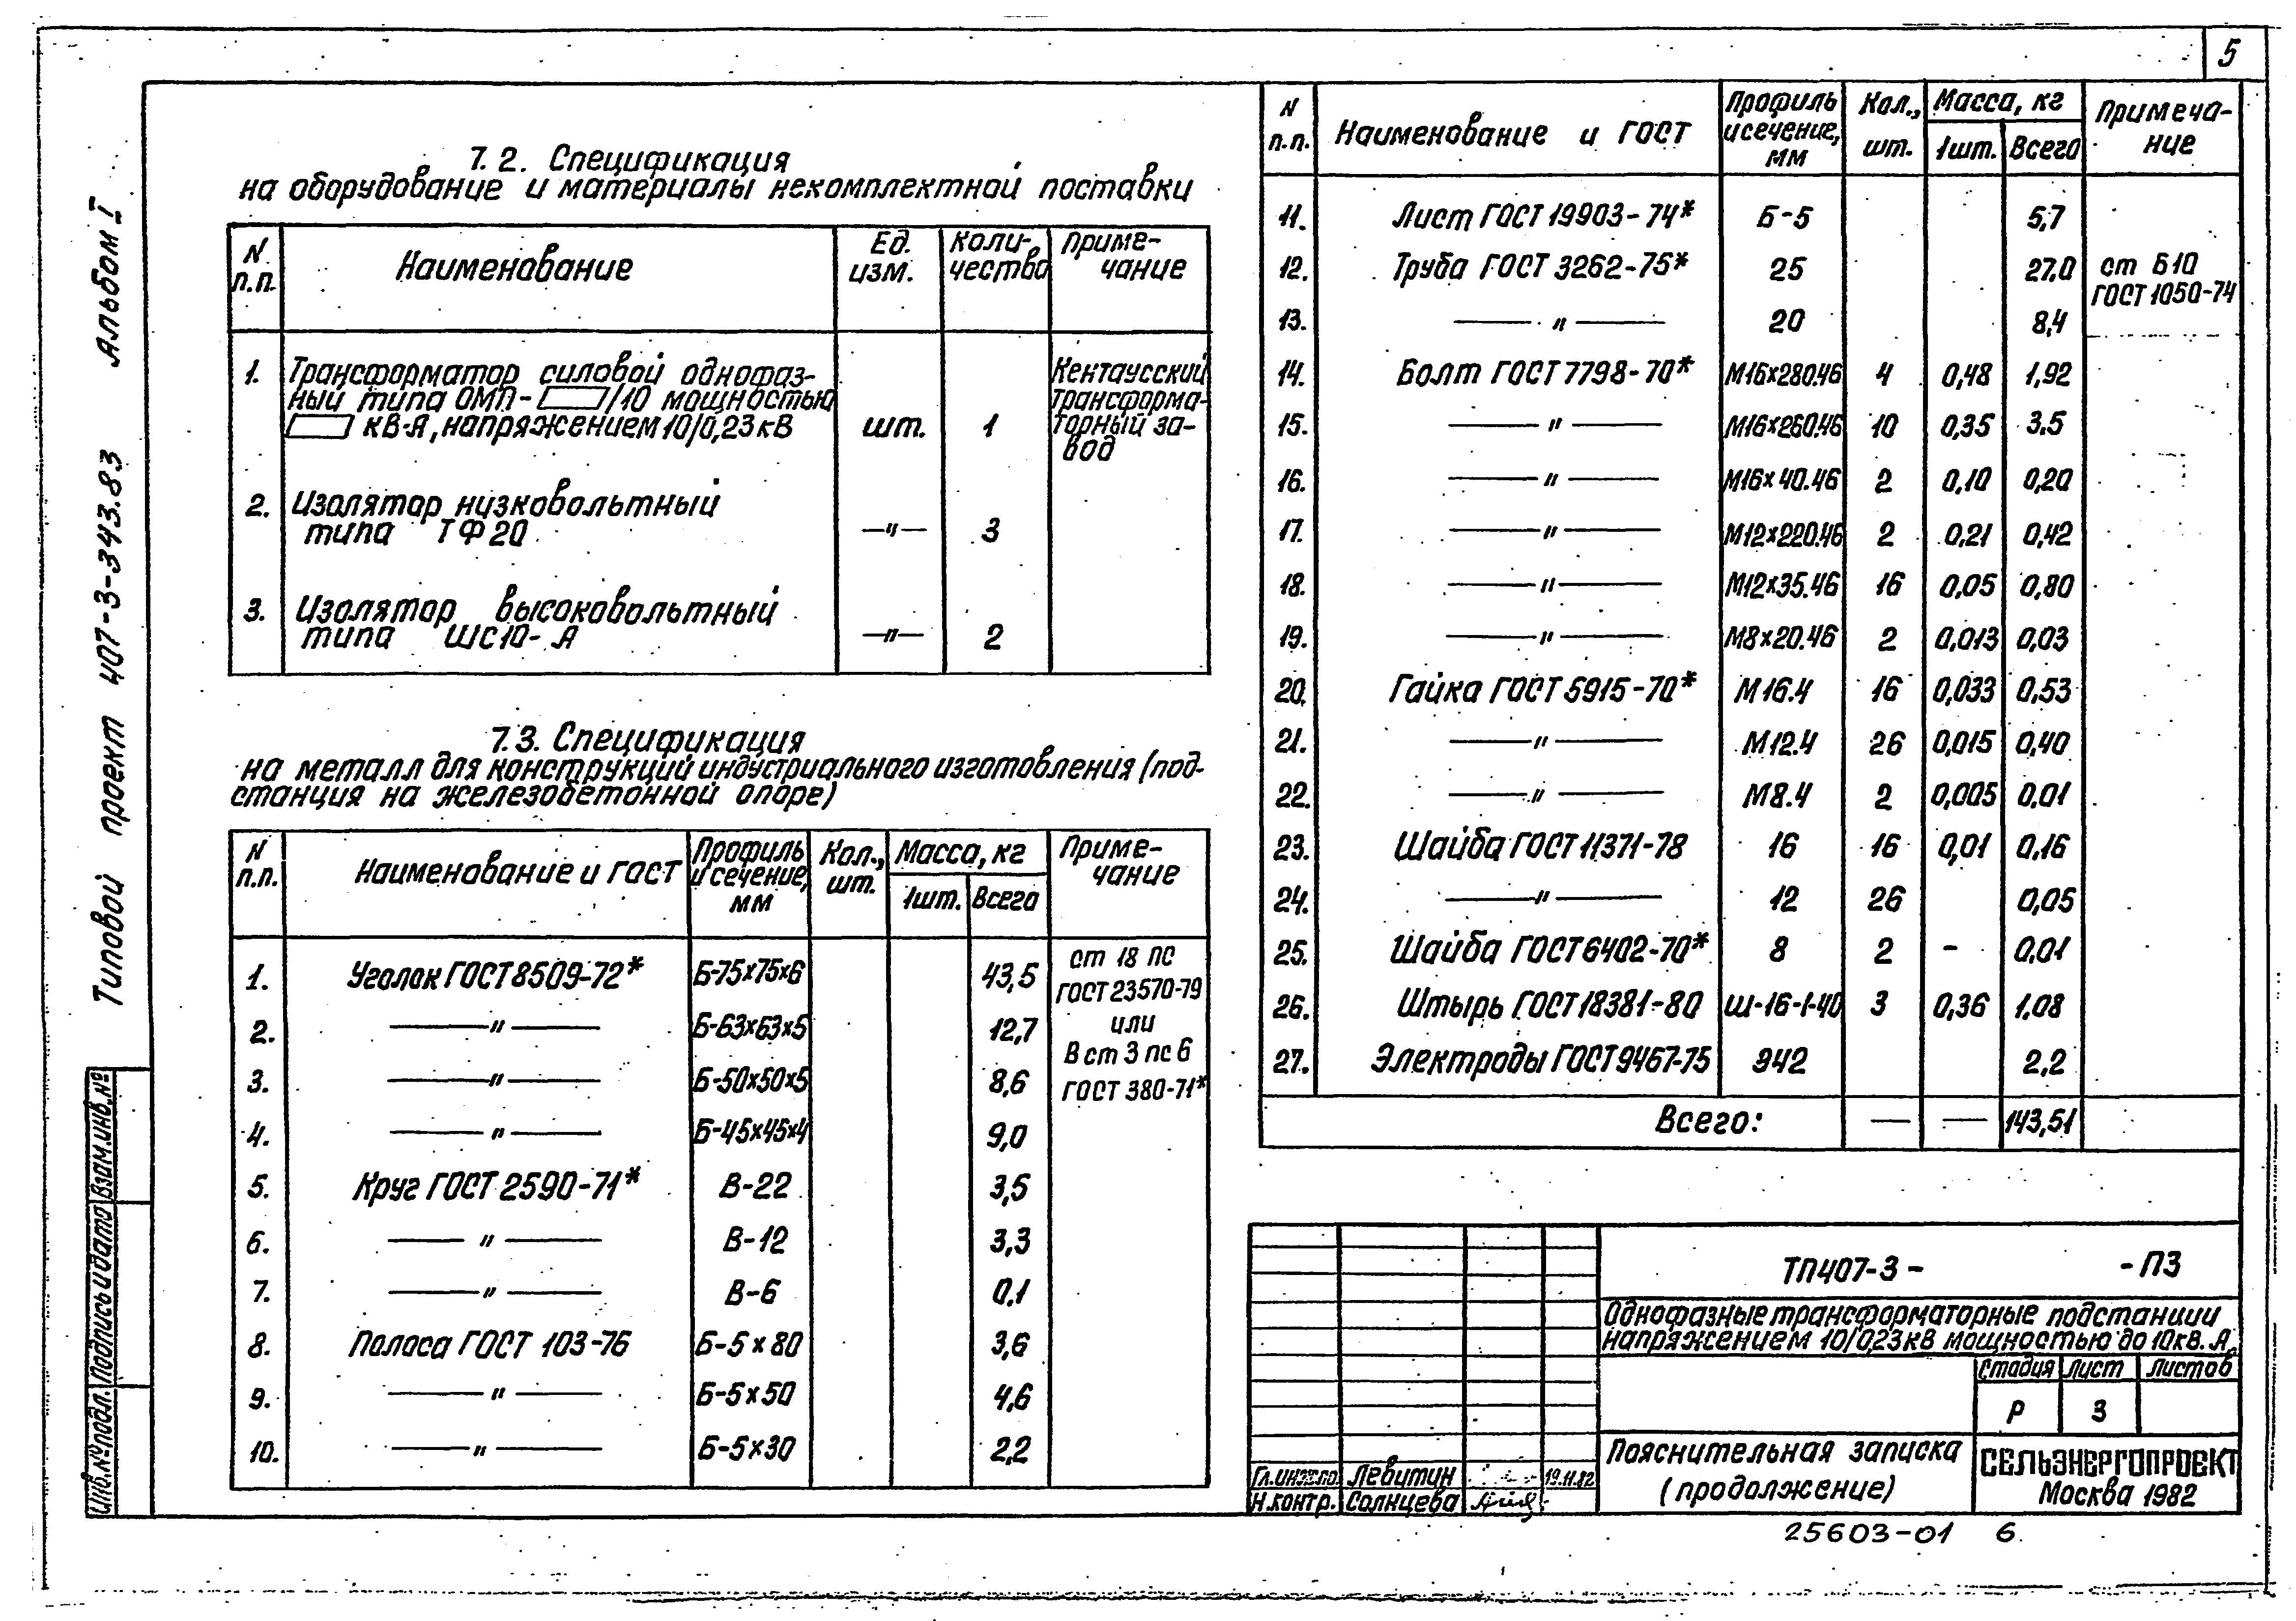 5
Альбом I
Типовой проект 407-3-343.83
7.2. Спецификация
на оборудование и материалы некомплектной поставки
N п.п. Наименование Ед. изм. Коли-чество Приме-чание
1. Трансформатор силовой однофаз-
ный типа ОМП- /10 мощностью
кВ·А, напряжением 10/0,23кВ шт. 1 Кентауский трансформа-торный за-вод
2. Изолятор низковольтный
типа ТФ20 —"— 3
3. Изолятор высоковольтный
типа ШС10-А —"— 2
7.3. Спецификация
на металл для конструкций индустриального изготовления (под-
станция на железобетонной опоре)
N п.п. Наименование и ГОСТ Профиль и сечение, мм Кол., шт. Масса, кг 1шт. Всего Приме-чание
1. Уголок ГОСТ 8509-72* Б-75х75х6 43,5 ст 18 пс ГОСТ 23570-79
2. —"— Б-63х63х5 12,7 или
3. —"— Б-50х50х5 8,6 В ст 3 пс 6 ГОСТ 380-71*
4. —"— Б-45х45х4 9,0
5. Круг ГОСТ 2590-71* В-22 3,5
6. —"— В-12 3,3
7. —"— В-6 0,1
8. Полоса ГОСТ 103-76 Б-5х80 3,6
9. —"— Б-5х50 4,6
10. —"— Б-5х30 2,2
N п.п. Наименование и ГОСТ Профиль и сечение, мм Кол., шт. Масса, кг 1шт. Всего Примеча-ние
11. Лист ГОСТ 19903-74* Б-5 5,7
12. Труба ГОСТ 3262-75* 25 27,0 ст Б10 ГОСТ 1050-74
13. —"— 20 8,4
14. Болт ГОСТ 7798-70* М16х280.46 4 0,48 1,92
15. —"— М16х260.46 10 0,35 3,5
16. —"— М16х40.46 2 0,10 0,20
17. —"— М12х220.46 2 0,21 0,42
18. —"— М12х35.46 16 0,05 0,80
19. —"— М8х20.46 2 0,013 0,03
20. Гайка ГОСТ 5915-70* М16.4 16 0,033 0,53
21. —"— М12.4 26 0,015 0,40
22. —"— М8.4 2 0,005 0,01
23. Шайба ГОСТ 11371-78 16 16 0,01 0,16
24. —"— 12 26 0,05
25. Шайба ГОСТ 6402-70* 8 2 - 0,01
26. Штырь ГОСТ 18381-80 Ш-16-1-40 3 0,36 1,08
27. Электроды ГОСТ 9467-75 Э42 2,2
Всего: — — 143,51
ТП407-3- -ПЗ
Однофазные трансформаторные подстанции
напряжением 10/0,23кВ мощностью до 10кВ.А
Стадия Лист Листов
Р 3
Пояснительная записка
(продолжение)
СЕЛЬЭНЕРГОПРОЕКТ
Москва 1982
Гл.инж.пр. Левитин 19.11.82
Н.контр. Солнцева
Инв.№ подл. Подпись и дата Взам.инв.№
25603-01 6